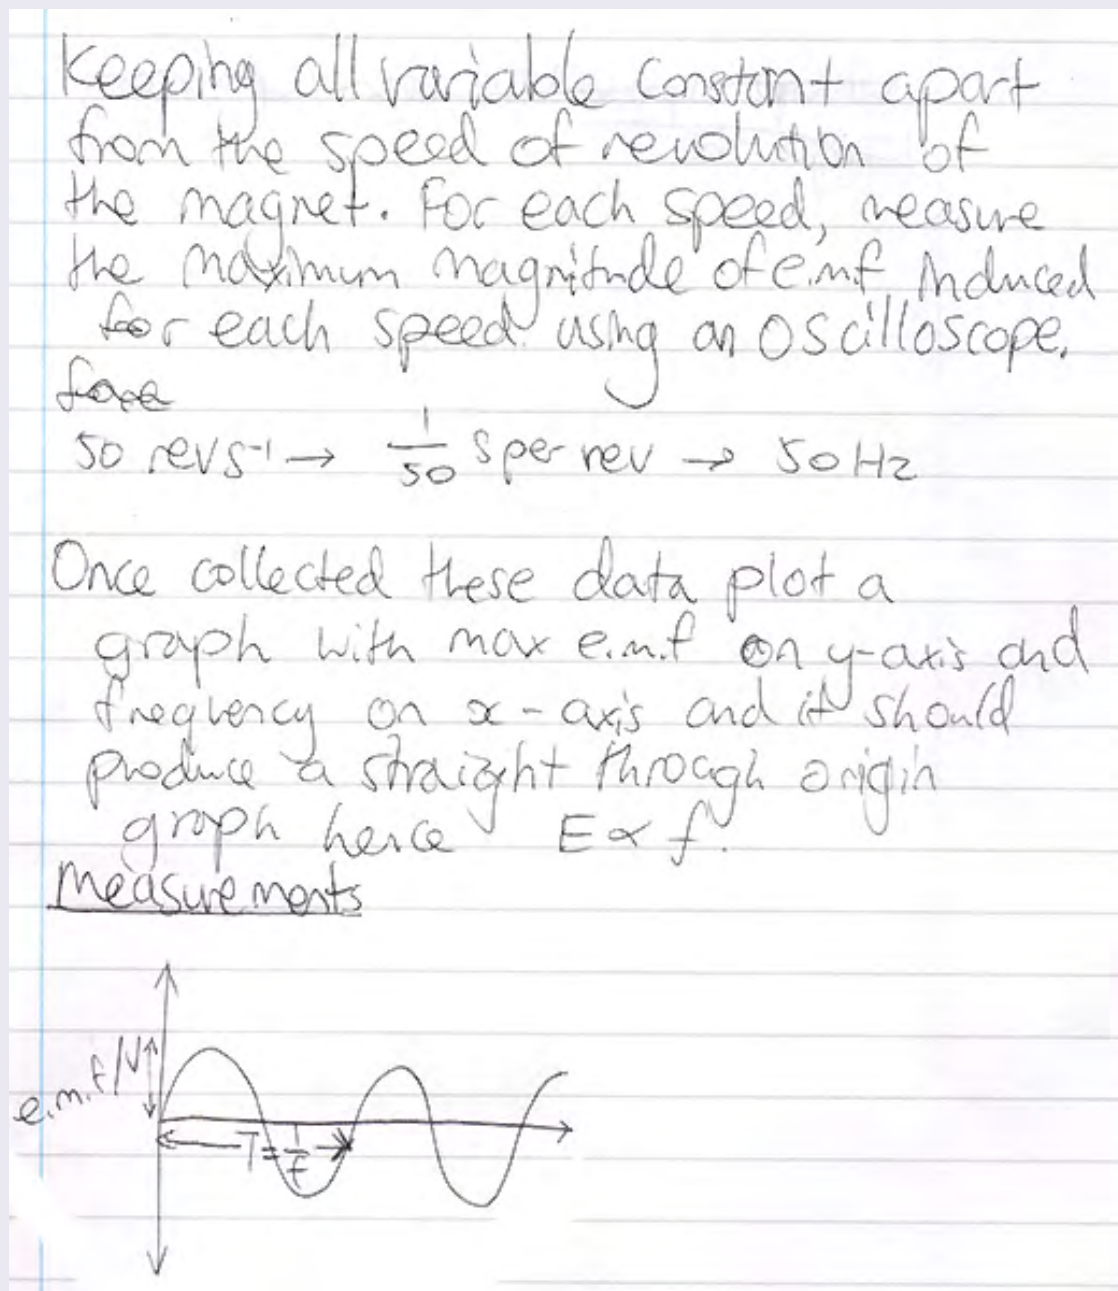 Keeping all variable constant apart
from the speed of revolution of
the magnet. For each speed, measure
the maximum magnitude of e.m.f induced
for each speed using an oscilloscope.
50 rev s⁻¹ → 1/50 s per rev → 50 Hz
Once collected these data plot a
graph with max e.m.f on y-axis and
frequency on x-axis and it should
produce a straight through origin
graph hence E ∝ f.
Measurements
e.m.f/V
T = 1/f